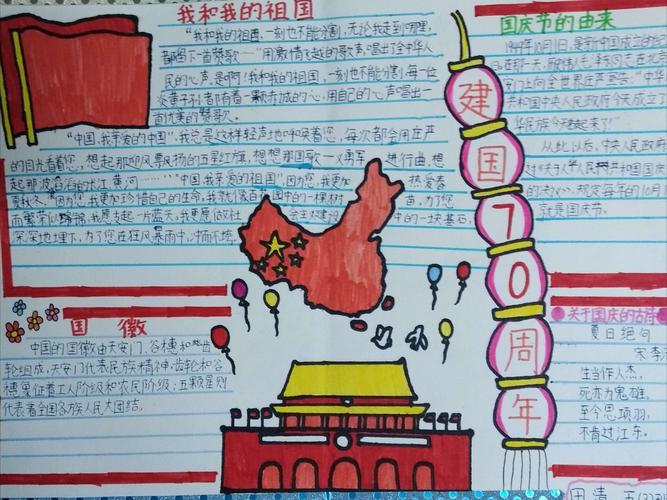 我和我的祖国
"我和我的祖国,一刻也不能分割,无论我走到哪里,
都留下一首赞歌……"用激情飞越的歌声,唱出了全中华人
民的心声。是啊!我和我的祖国,一刻也不能分割,每一位
炎黄子孙都有着一颗赤诚的心,用自己的心声唱出一
首优美的赞歌。
"中国,我亲爱的中国",我总是这样轻声地呼唤着您,每次都会用庄严
的目光看着您,想起那迎风飘扬的五星红旗,想想那国歌——义勇军 进行曲,想
起那波 的长江、黄河……"中国,我亲爱的祖国",因为您,我更加 热爱春
夏秋冬,因为您,我更加珍惜自己的生命,我 祖国中的一棵树 苗,为了您
而繁荣 ,我愿去起一片蓝天,我更愿做社 会主义建设 中的一块基石,
深深地埋下,为了您在狂风暴雨中
国庆节的由来
1949年10月1日,是新中国成立的
在那一天,敬爱伟人毛泽东在北京
门上向全世界庄严宣告:"中华
共和国中央人民政府今天成立了
华民族今天起来了!"
从此以后,中央人民政府
《关于 人民共和国国庆
的决 》,规定每年的10月
就是国庆节。
建国70周年
国徽
中国的国徽由天安门、谷穗和齿
轮组成,天安门代表民族精神,齿轮和谷
穗象征着工人阶级和农民阶级;五颗星则
代表着全国各族人民大团结。
关于国庆的古诗
夏日绝句
宋李
生当作人杰,
死亦为鬼雄。
至今思项羽,
不肯过江东。
田清 五(3)